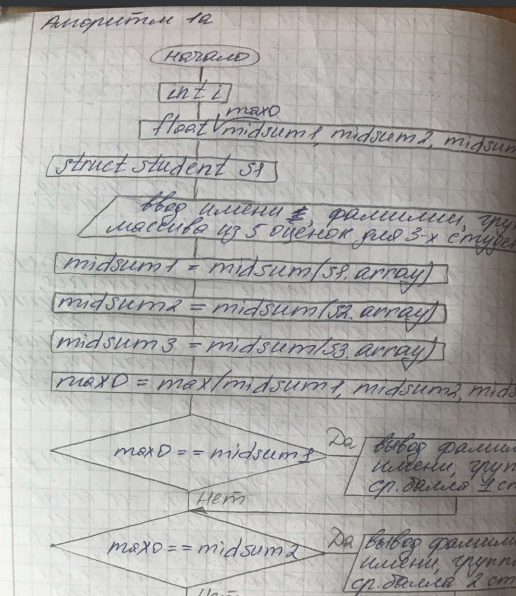 Алгоритм 1а
начало
int i
max0
float midsum1, midsum2, midsum
struct student s1
ввод имени, фамилии, гру
массива из 5 оценок для 3-х студе
midsum1 = midsum(s1.array)
midsum2 = midsum(s2.array)
midsum3 = midsum(s3.array)
max0 = max(midsum1, midsum2, mids
max0 == midsum1
Да
вывод фамили
имени, груп
ср. балла 1 ст
Нет
max0 == midsum2
Да
вывод фамили
имени, групп
ср. балла 2 ст
Нет